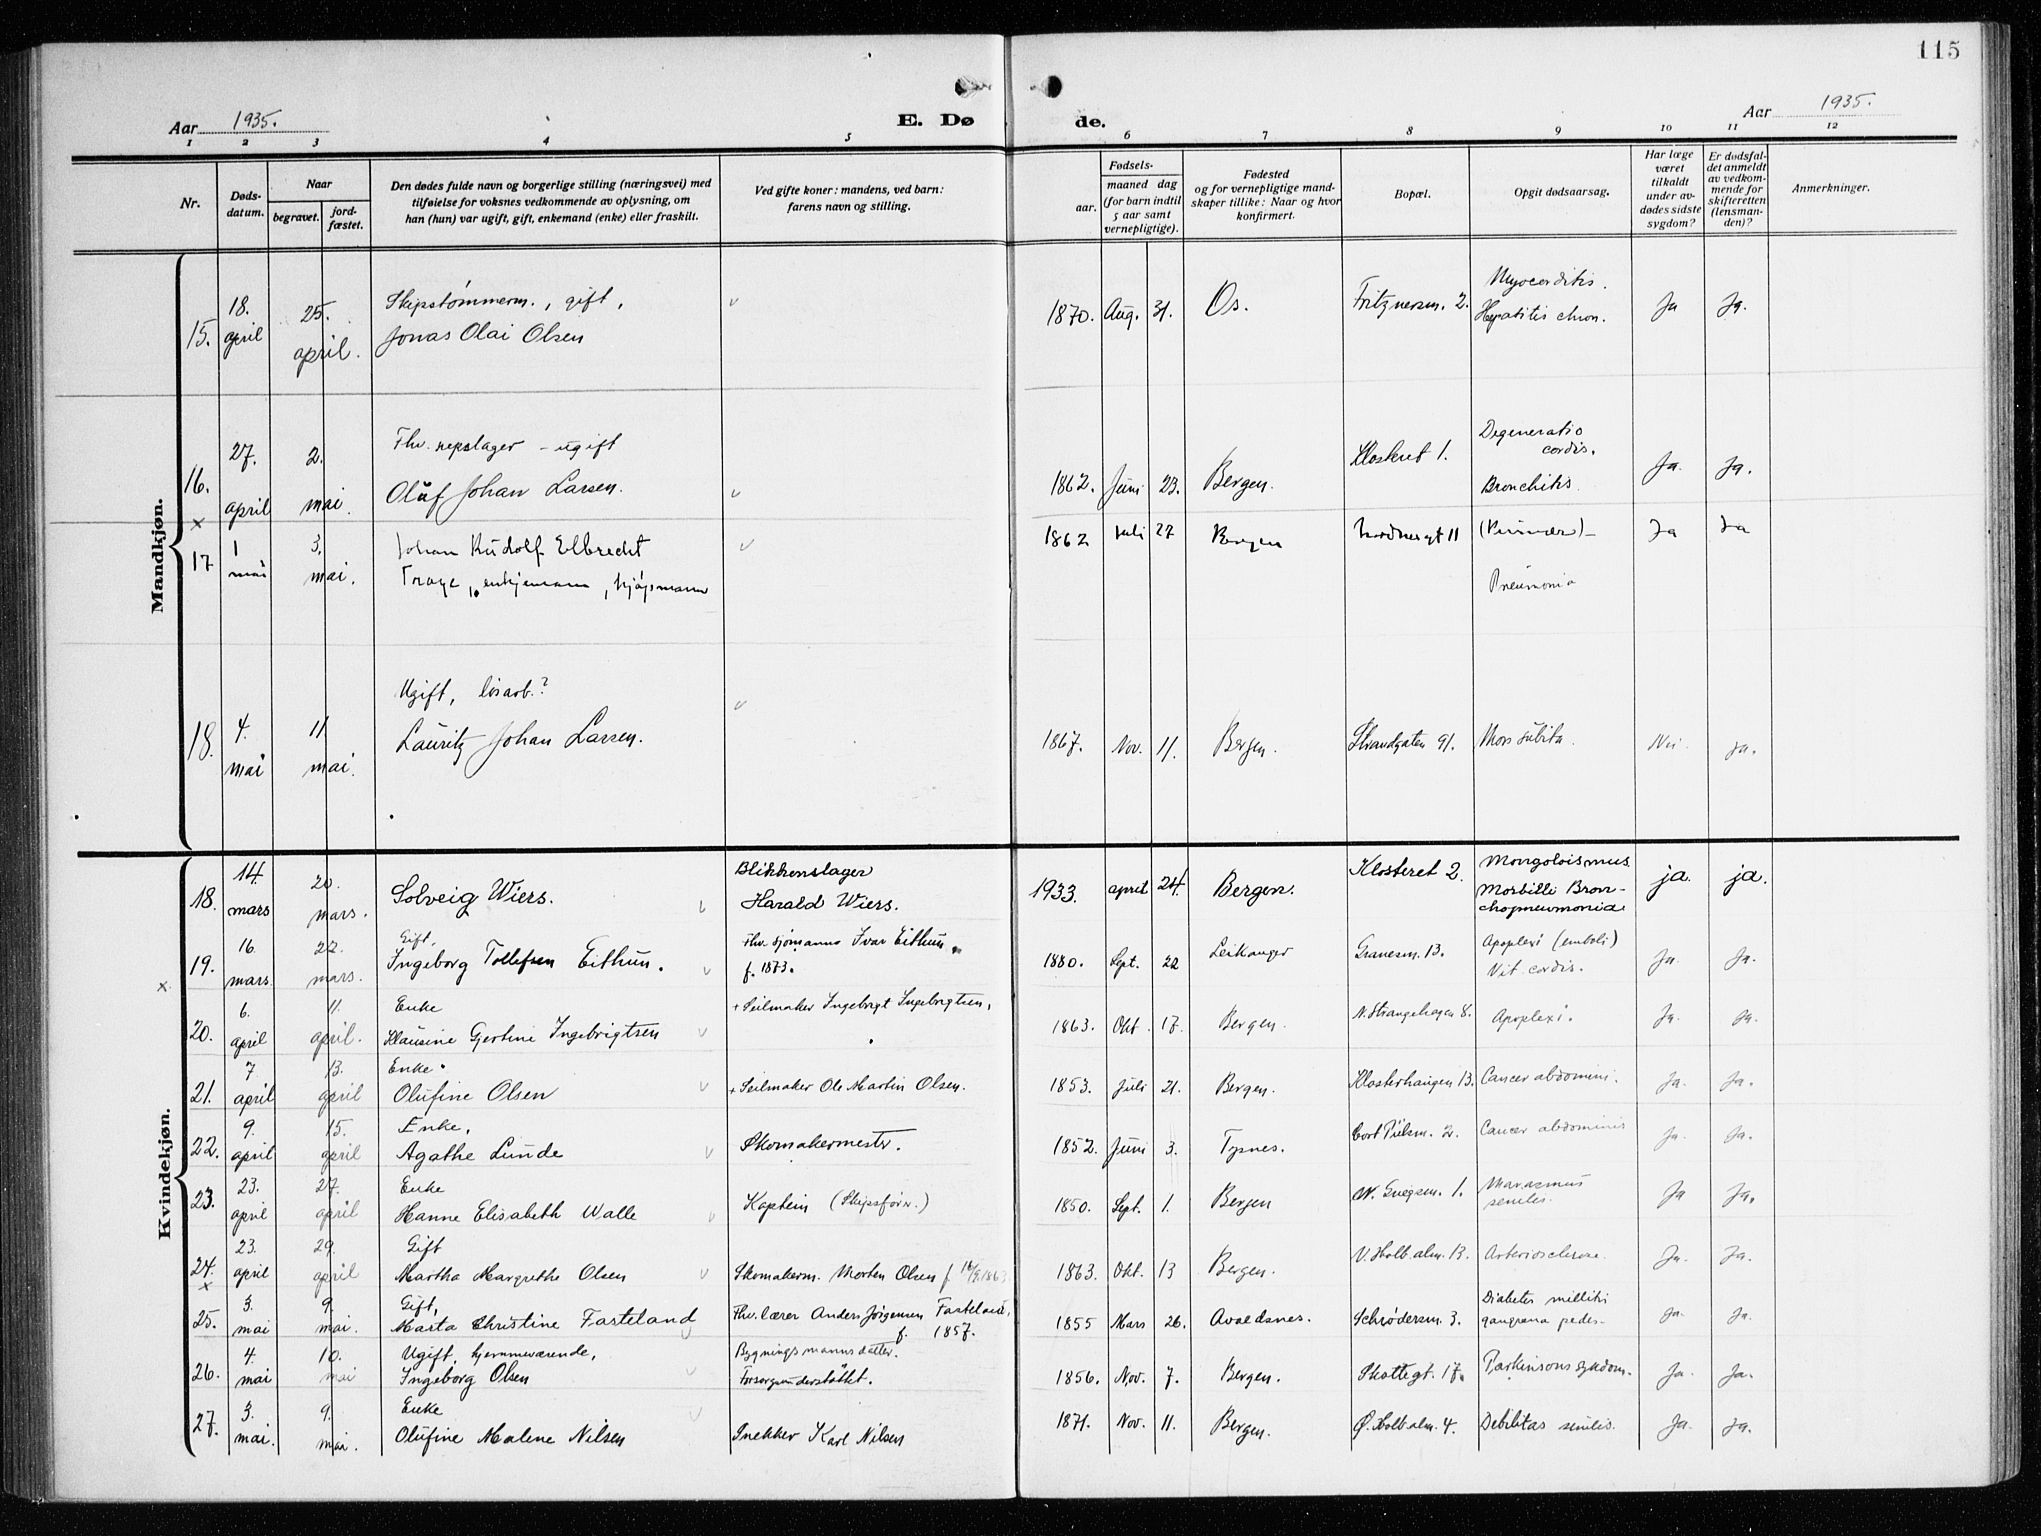 115
Aar 1935.
E. Dø de.
Aar 1935.
1 2 3 4 5 6 7 8 9 10 11 12
Nr.
Døds-
datum.
Naar
begravet.
jord-
fæstet.
Den dødes fulde navn og borgerlige stilling (næringsvei) med
tilføielse for voksnes vedkommende av oplysning, om
han (hun) var ugift, gift, enkemand (enke) eller fraskilt.
Ved gifte koner: mandens, ved barn:
farens navn og stilling.
Fødsels-
aar.
maaned dag
(for barn indtil
5 aar samt
vernepligtige).
Fødested
og for vernepligtige mand-
skaper tillike: Naar og hvor
konfirmert.
Bopæl.
Opgit dødsaarsag.
Har læge
været
tilkaldt
under av-
dødes sidste
sygdom?
Er dødsfal-
det anmeldt
av vedkom-
mende for
skifteretten
(lensman-
den)?
Anmerkninger.
Mandkjøn.
15. 18. april 25. april. Skipstømmerm., gift,
Jonas Olai Olsen
1870. Aug. 31. Os. Fritznersm. 2. Myocarditis.
Hepatitis chron. Ja Ja.
16. 27. april 2. mai. Fhv. repslager - ugift
Olaf Johan Larsen.
1862. Juni 23. Bergen. Klosteret 1. Degeneratio
cordis.
Bronchitis. Ja. Ja.
17 1 mai 3. mai. Johan Rudolf Elbrecht
Traye, enkjemann, kjøpmann
1862 Juli 27 Bergen Nordnesgt 11
Pneumonia Ja Ja
18. 4. mai 11 mai. Ugift, løsarb.?
Lauritz Johan Larsen.
1867. Nov. 11. Bergen. Strandgaten 91. Mors subita. Nei. Ja.
Kvindekjøn.
18. 14. mars 20. mars. Solveig Wiers. Blikkenslager
Harald Wiers.
1933. april 24. Bergen. Klosteret 2. Mongoloismus
Morbilli Bron-
chopneumonia ja. ja.
19. 16. mars 22. mars. Gift,
Ingeborg Tollefsen Eithun. Fhv. sjømanns Ivar Eithun
f. 1873.
1880. Sept. 22 Leikanger Granesm. 13. Apoplexi (emboli)
Vit. cordis. Ja. Ja.
20. 6. april 11. april. Enke
Klausine Gjertine Ingebrigtsen + Seilmaker Ingebrigt Ingebrigtsen,
1863. Okt. 17. Bergen. N. Strangehagen 8. Apoplexi. Ja. Ja.
21. 7 april 13. april Enke.
Olufine Olsen + Seilmaker Ole Martin Olsen.
1853. Juli 21. Bergen. Klosterhaugen 13. Cancer abdomini. Ja. Ja.
22. 9. april 15. april Enke,
Agathe Lunde Skomakermester.
1852. Juni 3. Tysnes. Cort Piilsm. 2. Cancer abdominis Ja. Ja.
23. 23. april 27. april Enke
Hanne Elisabeth Walle Kaptein (Skipsfører.)
1850. Sept. 1. Bergen 1. Marasmus
seniles. Ja Ja.
24. 23. april 29. april Gift
Martha Margrethe Olsen Skomakerm. Morten Olsen f 16/9.1863.
1863. Okt. 13 Bergen. V. Holb.alm. 13. Arteriosclerose. Ja. Ja.
25. 3. mai 9. mai. Gift,
Marta Christine Fasteland Fhv. lærer Anders Jørgensen Fasteland,
f. 1857.
1855 Mars 26. Avaldsnes. Schrødersm. 3. Diabetes milliti
gangræna pedes. Ja. Ja.
26. 4. mai 10. mai Ugift, hjemmeværende,
Ingeborg Olsen Bygningsmanns datter.
Forsorgsunderstøttet.
1856. Nov. 7. Bergen. Skottegt. 17. Parkinsons sykdom. Ja. Ja.
27. 3. mai. 9. mai. Enke
Olufine Malene Nilsen Snekker Karl Nilsen
1871. Nov. 11. Bergen. Ø. Holb.alm. 4. Debilitas senilis. Ja. Ja.